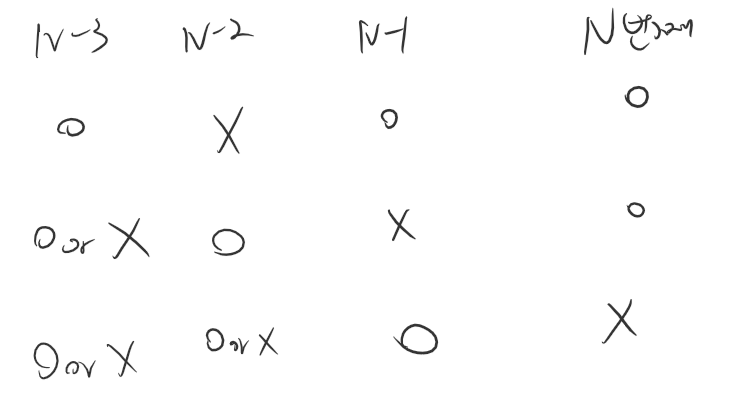 N-3 N-2 N-1 N번째
O X O O
O or X O X O
O or X O or X O X